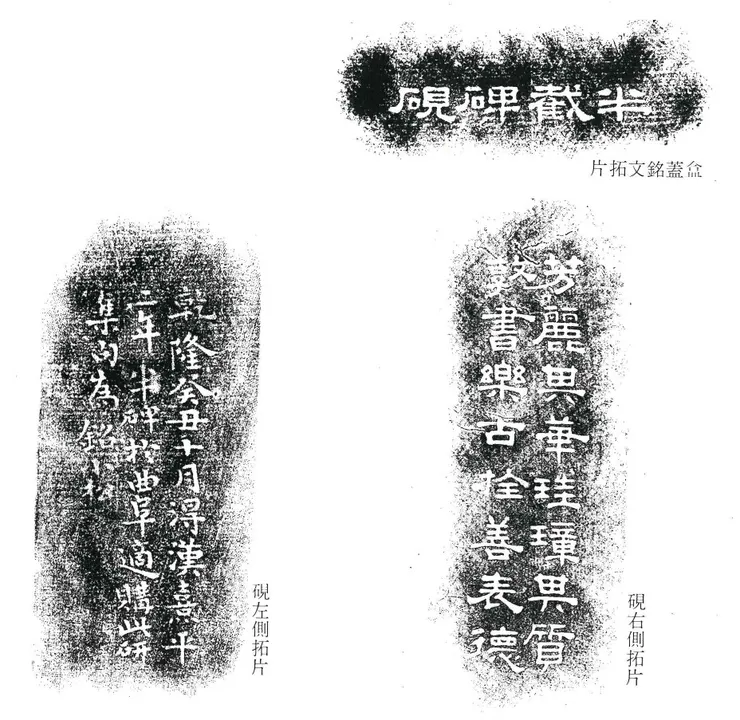 半截碑硯
盒蓋銘文拓片
芳麗其華珪璋其質
敦書樂古善表德
硯右側拓片
乾隆癸丑十月得漢熹平
二年半碑於曲阜適購此研
集句為銘小松
硯左側拓片